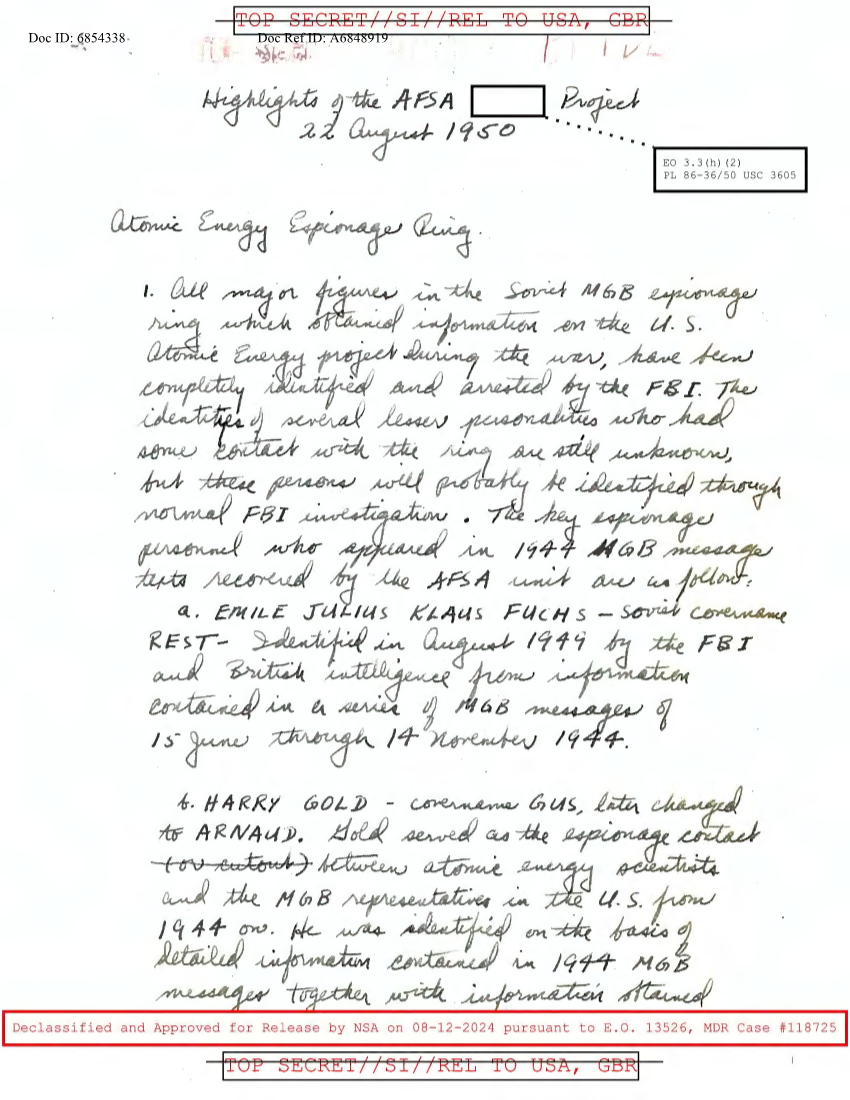 TOP SECRET//SI//REL TO USA, GBR
Doc ID: 6854338 Doc Ref ID: A6848919
Highlights of the AFSA Project
22 August 1950
EO 3.3(h)(2)
PL 86-36/50 USC 3605
Atomic Energy Espionage Ring.
1. All major figures in the Soviet MGB espionage
ring which obtained information on the U.S.
Atomic Energy project during the war, have been
completely identified and arrested by the FBI. The
identities of several lesser personalities who had
some contact with the ring are still unknown,
but these persons will probably be identified through
normal FBI investigation. The key espionage
personnel who appeared in 1944 MGB message
texts recovered by the AFSA unit are as follow:
a. EMILE JULIUS KLAUS FUCHS – Soviet covername
REST – Identified in August 1949 by the FBI
and British intelligence from information
contained in a series of MGB messages of
15 June through 14 November 1944.
b. HARRY GOLD – covername GUS, later changed
to ARNAUD. Gold served as the espionage contact
(or cutout) between atomic energy scientists
and the MGB representatives in the U.S. from
1944 on. He was identified on the basis of
detailed information contained in 1944 MGB
messages together with information obtained
Declassified and Approved for Release by NSA on 08-12-2024 pursuant to E.O. 13526, MDR Case #118725
TOP SECRET//SI//REL TO USA, GBR